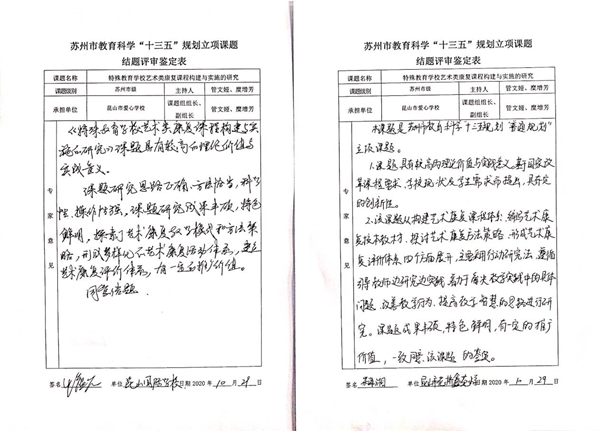 苏州市教育科学“十三五”规划立项课题
结题评审鉴定表
课题名称 特殊教育学校艺术类康复课程构建与实施的研究
课题级别 苏州市级 主持人 管文娅、糜增芳
承担单位 昆山市爱心学校 课题组组长、副组长 管文娅、糜增芳
专家意见
《特殊教育学校艺术类康复课程构建与实
施的研究》课题具有较高的理论价值与
实践意义。
课题研究思路正确、方法恰当，科学
性、操作性强，课题研究成果丰硕，特色
鲜明，探索了艺术康复教学模式和方法策
略，形成多样化的艺术康复活动体系，建立
艺术康复评价体系，有一定的推广价值。
同意结题。
签名 单位 昆山 学校 日期 2020 年 10 月 29 日
苏州市教育科学“十三五”规划立项课题
结题评审鉴定表
课题名称 特殊教育学校艺术类康复课程构建与实施的研究
课题级别 苏州市级 主持人 管文娅、糜增芳
承担单位 昆山市爱心学校 课题组组长、副组长 管文娅、糜增芳
专家意见
本课题是苏州市教育科学十三五规划“普通规划”
立项课题。
1.课题具有较高的理论价值与实践意义，基于国家改
革课程要求、学校现状及学生需求而提出，具有一定
的创新性。
2.该课题从构建艺术康复课程体系、编写艺术康
复校本教材、探讨艺术康复方法策略、形成艺术康
复评价体系四个方面展开，主要采用行动研究法，遵循
引导教师边研究边实践，着力于解决教学实践中的具体
问题、改善教学行为、提高教学智慧的思路进行研
究。课题成果丰硕，特色鲜明，有一定的推广
价值，一致同意该课题的鉴定。
签名 单位 昆山市 日期 2020 年 10 月 29 日